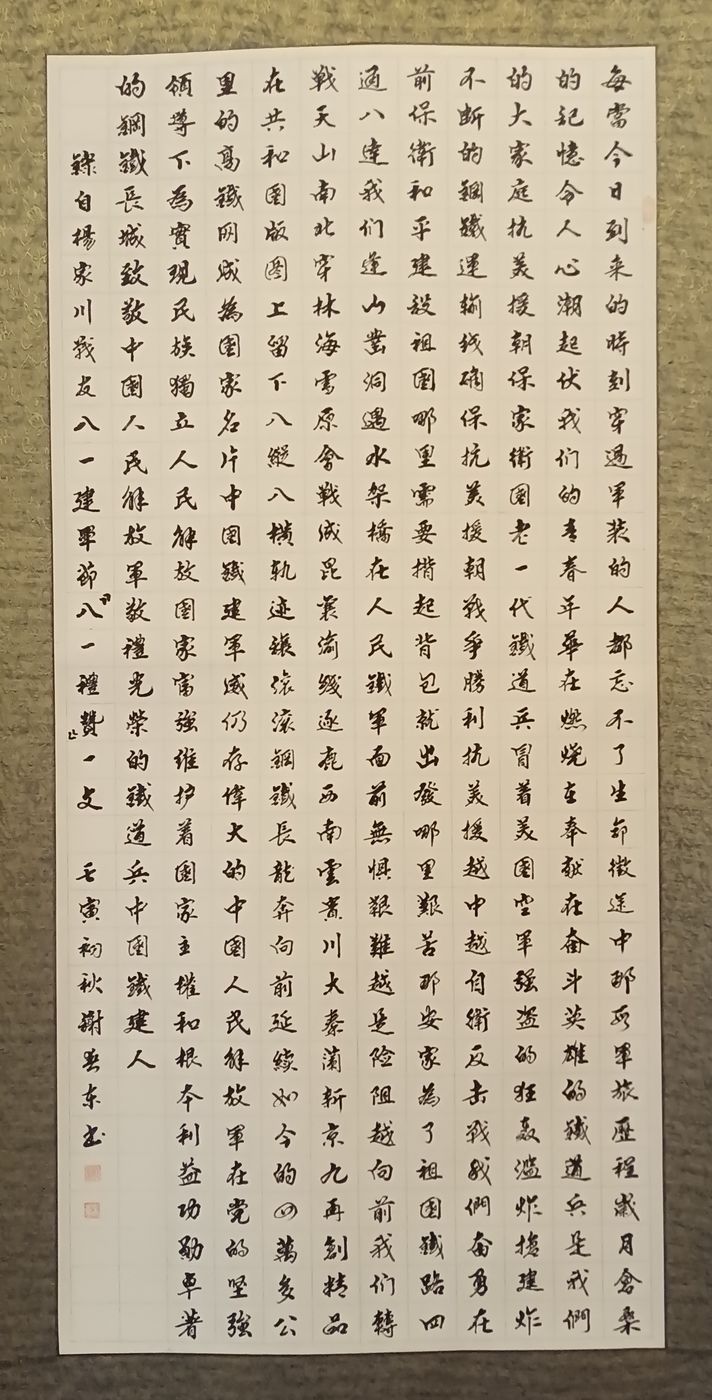 每當今日到来的時刻穿過軍装的人都忘不了生命徵途中那段軍旅歷程歲月會桑
的記憶令人心潮起伏我们的青春年華在燃烧在奉献在奋斗英雄的鐵道兵是我們
的大家庭抗美援朝保家衛國老一代鐵道兵冒着美國空軍强盗的狂轰濫炸搶建炸
不断的鋼鐵運輸线确保抗美援朝戰爭勝利抗美援越中越自衛反击戰我們奋勇在
前保衛和平建設祖國哪里需要揹起背包就出發哪里艱苦那安家為了祖国鐵路四
通八達我们逢山鑿洞遇水架橋在人民鐵軍面前無惧艱難越是险阻越向前我们轉
戰天山南北穿林海雪原會戰成昆襄渝线逐鹿西南雲貴川大秦蘭新京九再創精品
在共和國版图上留下八縱八横軌迹滚滚鋼鐵長龍奔向前延续如今的四萬多公
里的高鐵网成為國家名片中国鐵建軍威仍存偉大的中國人民解放軍在党的坚强
領導下為實現民族獨立人民解放國家富强维护着國家主權和根本利益功勋卓著
的鋼鐵長城致敬中國人民解放軍敬禮光榮的鐵道兵中國鐵建人
錄自楊家川戰友八一建軍節八一禮贊一文 壬寅初秋謝東书